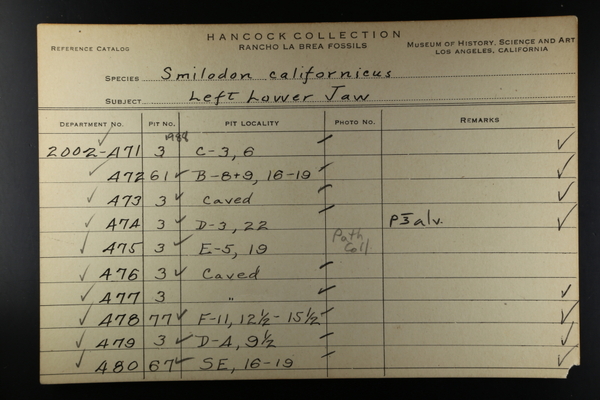 HANCOCK COLLECTION
REFERENCE CATALOG RANCHO LA BREA FOSSILS MUSEUM OF HISTORY, SCIENCE AND ART
LOS ANGELES, CALIFORNIA
SPECIES Smilodon californicus
SUBJECT Left Lower Jaw
DEPARTMENT NO. PIT NO. PIT LOCALITY PHOTO NO. REMARKS
2002-A71 3 C-3, 6
A72 61 B-8+9, 16-19
A73 3 Caved
A74 3 D-3, 22 alv.
A75 3 E-5, 19 Path Coll
A76 3 Caved
A77 3 "
A78 77 F-11, 12½-15½
A79 3 D-4, 9½
A80 67 SE, 16-19